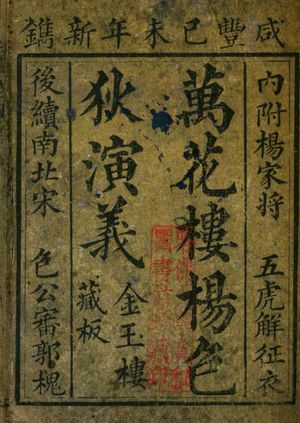 咸豐已未年新鐫
內附楊家將 五虎解征衣
萬花樓楊包
狄演義
金玉樓
藏板
後續南北宋 包公審郭槐